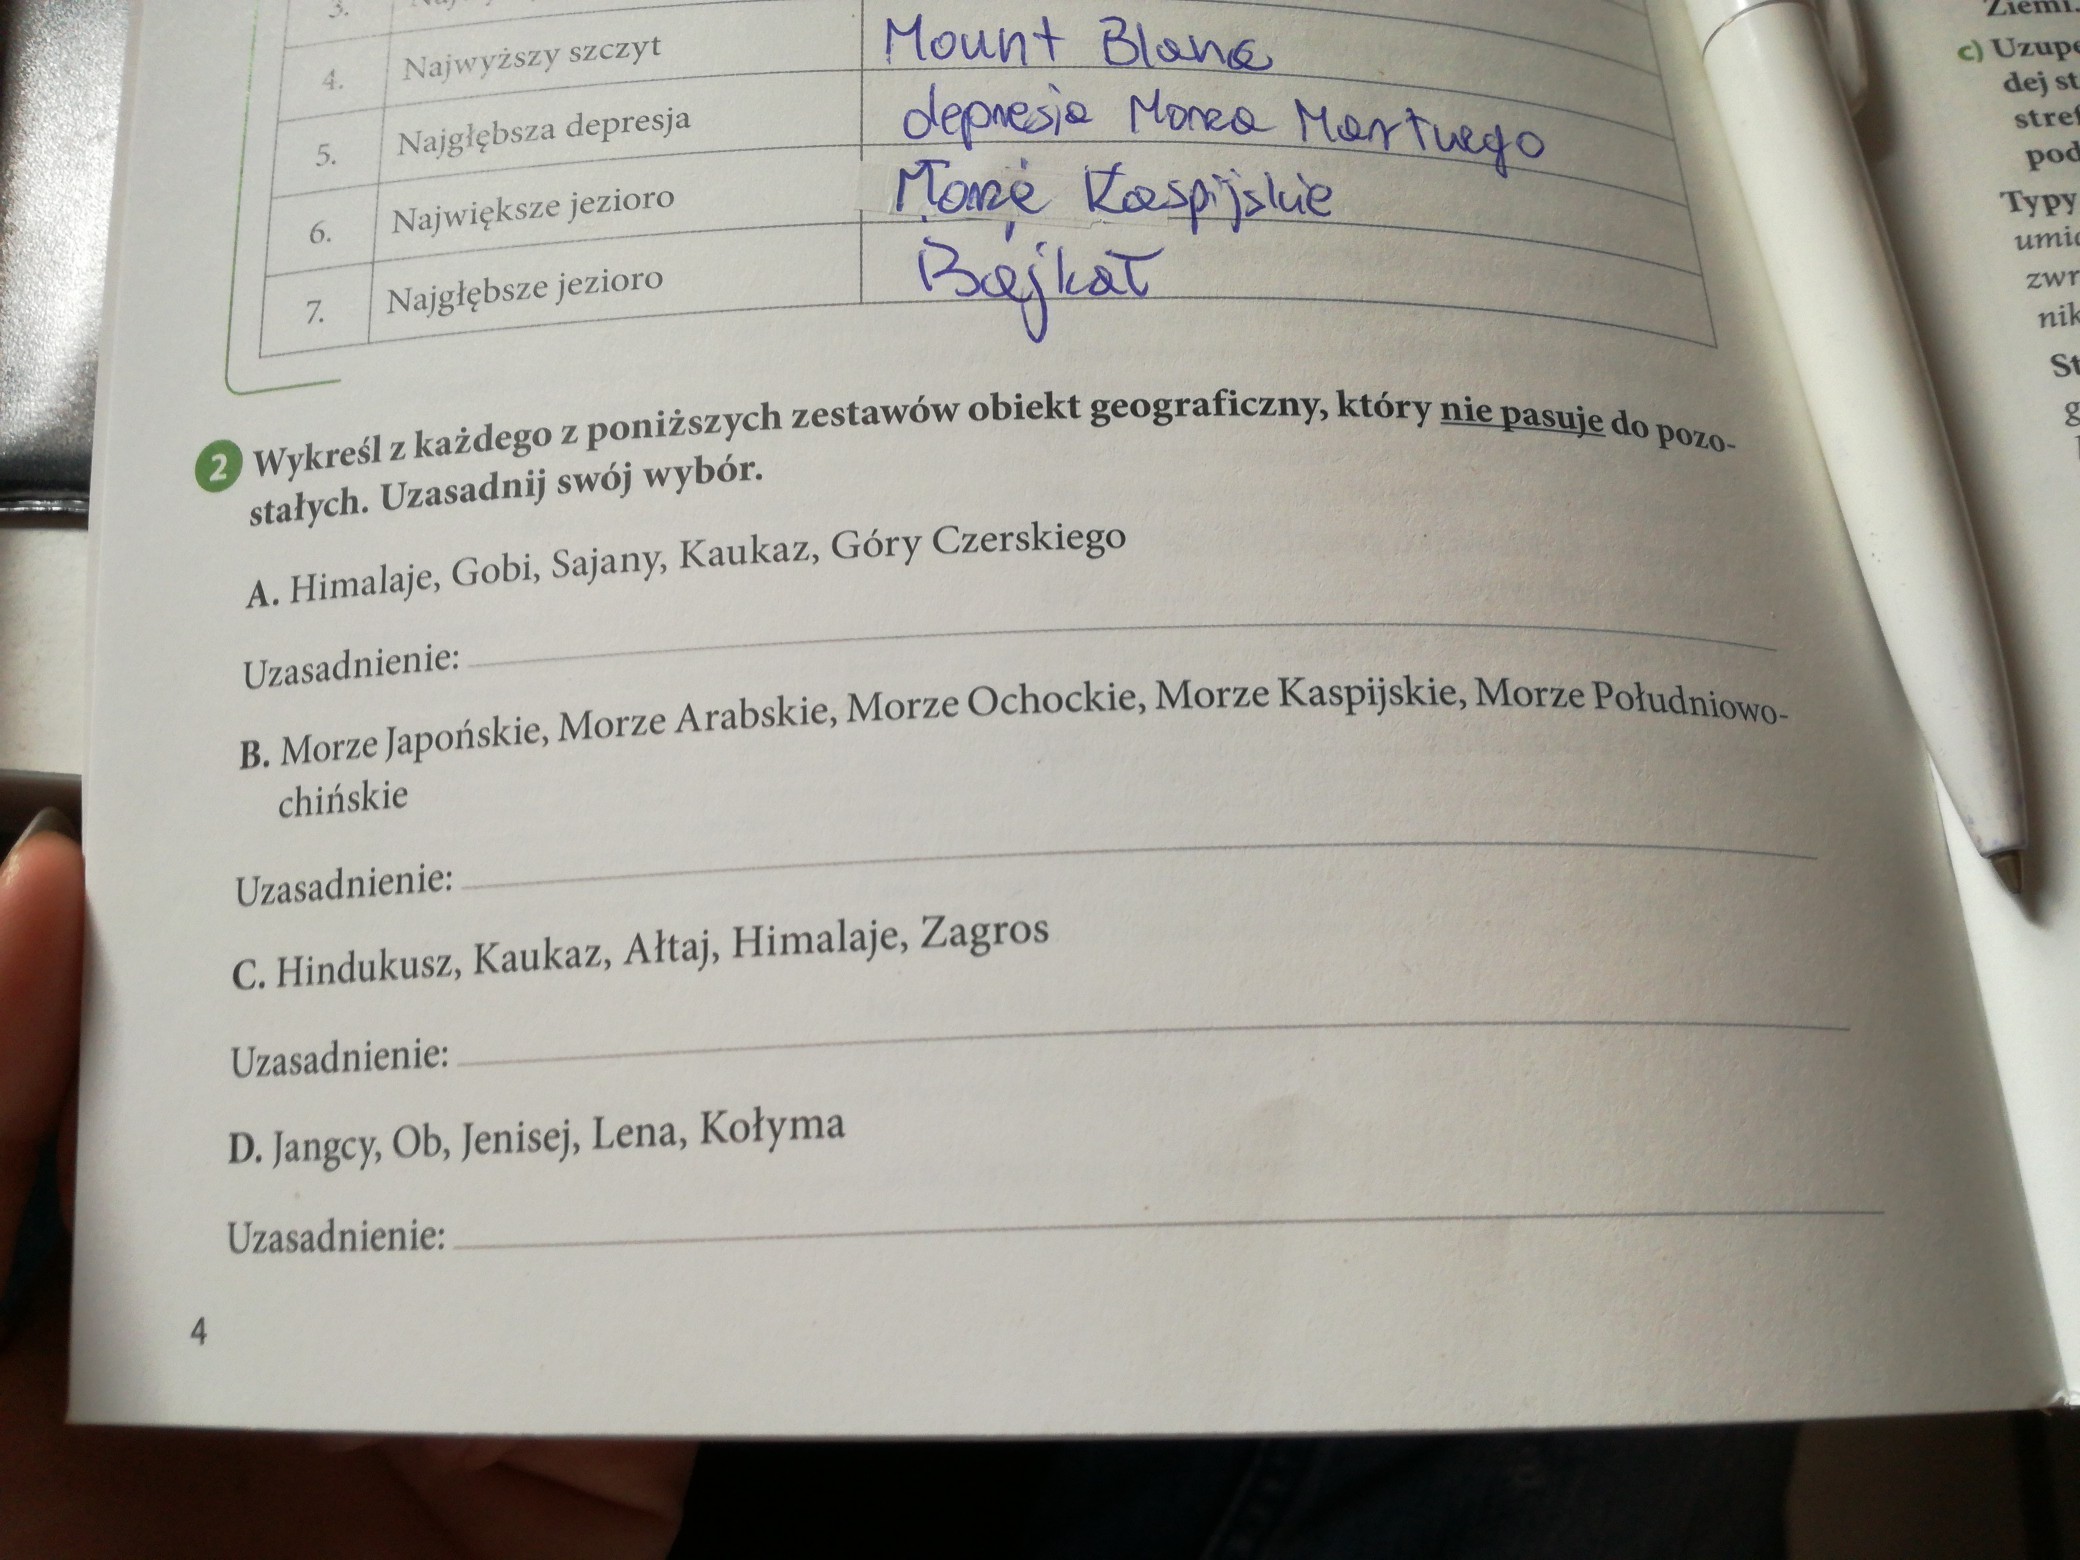 3.
4. Najwyższy szczyt Mount Blanc
5. Najgłębsza depresja depresja Morza Martwego
6. Największe jezioro Morze Kaspijskie
7. Najgłębsze jezioro Bajkał
2 Wykreśl z każdego z poniższych zestawów obiekt geograficzny, który nie pasuje do pozo-
stałych. Uzasadnij swój wybór.
A. Himalaje, Gobi, Sajany, Kaukaz, Góry Czerskiego
Uzasadnienie:
B. Morze Japońskie, Morze Arabskie, Morze Ochockie, Morze Kaspijskie, Morze Południowo-
chińskie
Uzasadnienie:
C. Hindukusz, Kaukaz, Ałtaj, Himalaje, Zagros
Uzasadnienie:
D. Jangcy, Ob, Jenisej, Lena, Kołyma
Uzasadnienie:
4
Ziemi.
c) Uzupe
dej st
stref
pod
Typy
umia
zwr
nik
St
g